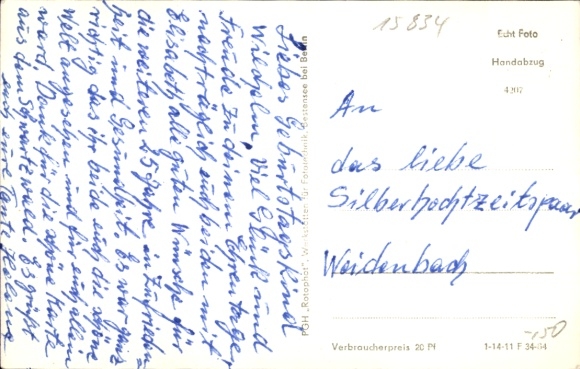 Liebes Geburtstagskind
Wilhelm, Viel Glück und
Freude zu deinem Ehrentage,
nachträglich euch beiden mit
Elisabeth alle guten Wünsche für
die weiteren 25 Jahre in Zufrieden
heit und Gesundheit. Es war ganz
richtig das ihr beide euch die schöne
Welt angesehen und für euch allein
ward. Danke für die schöne Karte
aus dem Schwartzwald. Es grüßt
euch eure Tante Helene
PGH „Rotophot", Werkstätten für Fototechnik, Bestensee bei Berlin
15 834
Echt Foto
Handabzug
4202
An
das liebe
Silberhochtzeitspaar
Weidenbach
-,50
Verbraucherpreis 20 Pf 1-14-11 F 34-04